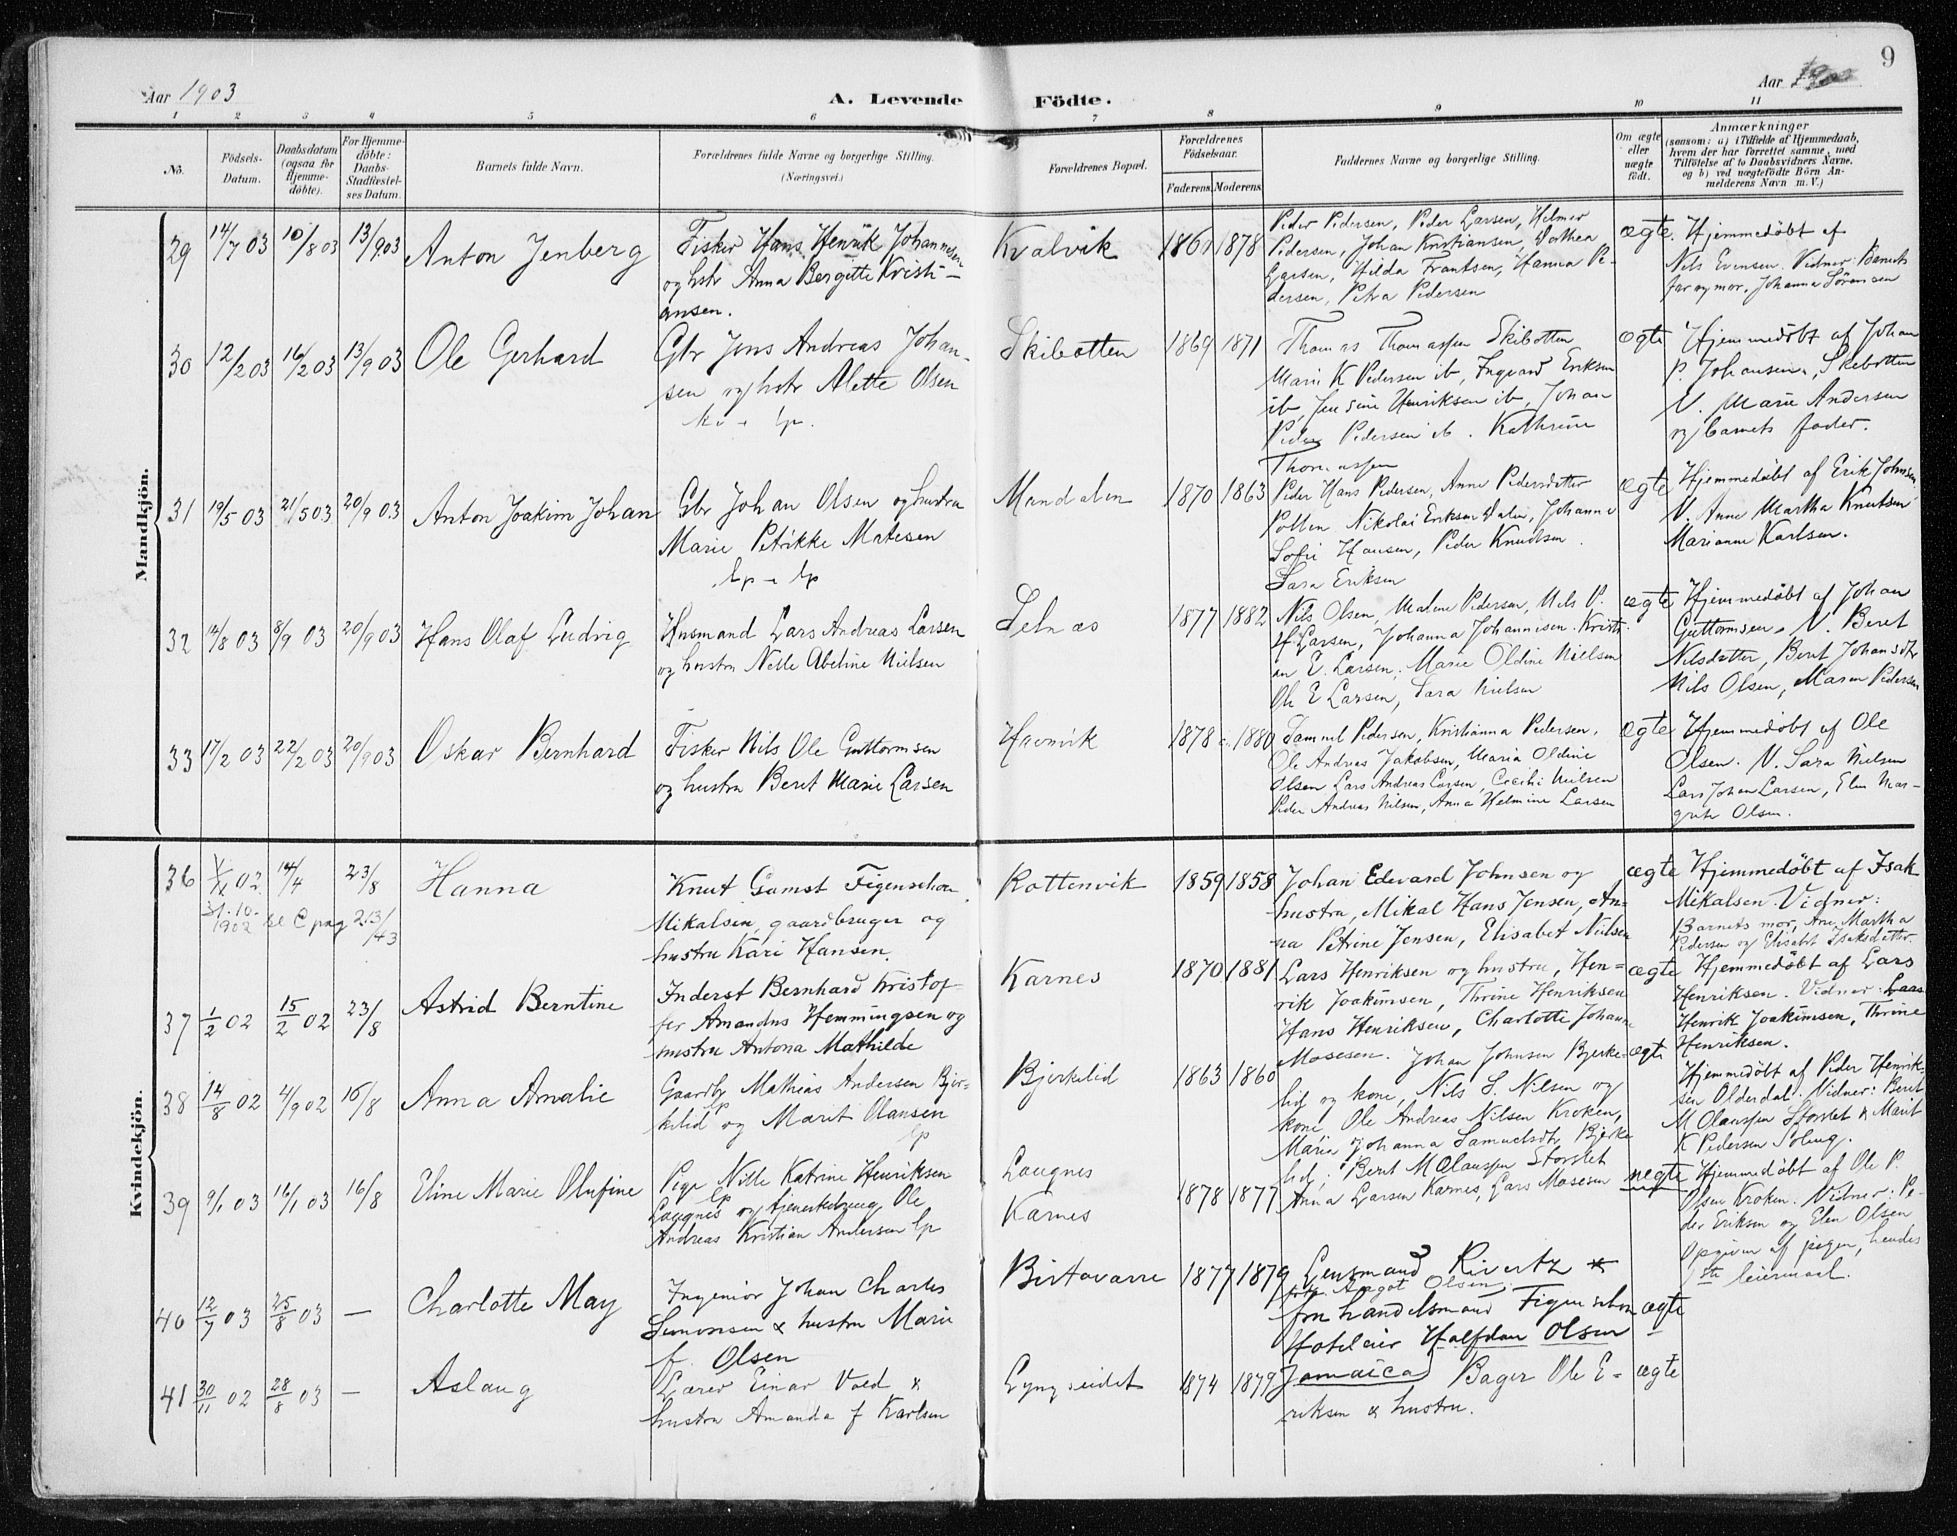 9
Aar 1903
A. Levende Födte.
Aar
1 2 3 4 5 6 7 8 9 10 11
No.
Födsels-Datum.
Daabsdatum (ogsaa for Hjemme-döbte).
For Hjemme-döbte: Daabs-Stadfæstel-ses Datum.
Barnets fulde Navn.
Forældrenes fulde Navne og borgerlige Stilling.
(Næringsvei.)
Forældrenes Bopæl.
Forældrenes Födselsaar.
Faderens. Moderens.
Faddernes Navne og borgerlige Stilling.
Om ægte eller uægte födt.
Anmærkninger
(saasom: a) i Tilfælde af Hjemmedaab,
hvem der har forrettet samme, med
Tilföielse af to Daabsvidners Navne,
og b) ved uægtefödte Börn An-
melderens Navn m. V.)
Mandkjön.
29 14/7 03 10/8 03 13/9 03 Anton Jenberg
Fisker Hans Henrik Johannesen
og hstr Anna Bergitte Kristi-
ansen.
Kvalvik 1878
Peder Pedersen, Peder Larsen, Helmer
Pedersen, Johan Kristiansen, Dorthea
Larsen, Hilda Frantsen, Hanna Pe-
dersen, Petra Pedersen
ægte. Hjemmedøbt af
Nils Evensen. Vidner: Barnets
far og mor, Johanna Sörensen
30 12/2 03 16/2 03 13/9 03 Ole Gerhard
Gbr Jens Andreas Johan-
sen og hstr Alette Olsen
Skibotten 1869 1871
Thomas Thomassen Skibotten
Marie K Pedersen ib, Ingvard Eriksen
ib, Jensine Henriksen ib, Johan
Peder Pedersen ib. Kathrine
Thomassen
ægte Hjemmedøbt af Johan
P. Johansen, Skibotten
V. Marie Andersen
og barnets fader.
31 19/5 03 21/5 03 20/9 03 Anton Joakim Johan
Gbr Johan Olsen og hustru
Marie Petrikke Matesen
Mandalen 1870 1863
Peder Hans Pedersen, Anne Pedersdatter
Pollen Nikolai Eriksen Dalen, Johanne
Sofie Hansen, Peder Knudtsen.
Sara Eriksen
ægte Hjemmedøbt af Erik Johnsen
V. Anne Martha Knutsen
Marianne Karlsen.
32 14/8 03 8/9 03 20/9 03 Hans Olaf Ludvig
Husmand Lars Andreas Larsen
og hustru Nelle Abeline Nielsen
Lelnæs 1877 1882
Nils Olsen, Malene Pedersen, Nils P.
H Larsen, Johanna Johannesen. Kristi-
an E. Larsen, Marie Oldine Nielsen
Ole E Larsen, Sara Nielsen
ægte Hjemmedøbt af Johan
Guttormsen. V. Beret
Nilsdatter, Beret Johansdtr
Nils Olsen, Maren Pedersen
33 17/2 03 22/2 03 20/9 03 Oskar Bernhard
Fisker Nils Ole Guttormsen
og hustru Beret Marie Larsen
Havnvik 1878 1880
Samuel Pedersen, Kristianna Pedersen,
Ole Andreas Jakobsen, Maria Oldine
Olsen Lars Andreas Larsen, Cecilie Nielsen
Peder Andreas Nilsen, Anna Helmine Larsen
ægte Hjemmedøbt af Ole
Olsen. V. Sara Nielsen
Lars Johan Larsen, Elen Mar-
grete Olsen.
Kvindekjön.
36 02 14/4 23/8 Hanna
31.10.1902 se C pag 213/43
Knut Gamst Figenschou
Mikalsen, gaardbruger og
hustru Kari Hansen.
Rottenvik 1859 1858
Johan Edevard Johnsen og
hustru, Mikal Hans Jensen, An-
na Petrine Jensen, Elisabet Nielsen
ægte Hjemmedøbt af Isak
Mikalsen. Vidner:
Barnets mor, Ane Martha
Pedersen og Elisabet Isaksdatter.
37 1/2 02 15/2 02 23/8 Astrid Berntine
Inderst Bernhard Kristof-
fer Amandus Hemmingsen og
hustru Antona Mathilde
Karnes 1870 1881
Lars Henriksen og hustru, Hen-
rik Joakimsen, Thrine Henriksen
Hans Henriksen, Charlotte Johanne
Mosesen.
ægte Hjemmedøbt af Lars
Henriksen. Vidner: Lars
Henrik Joakimsen, Thrine
Henriksen.
38 14/8 02 4/9 02 16/8 Anna Amalie
Gaardbr Mathias Andersen Bjer-
kelid og Marit Olausen
Bjerkelid 1863 1860
Johan Johnsen Bjerke-
lid og kone, Nils S. Nilsen og
kone, Ole Andreas Nilsen Kroken,
Marie og Johanna Samuelsdtr Bjerke
lid; Beret M Olaussen Storslet
ægte Hjemmedøbt af Peder Henrik-
sen Olderdal. Vidner: Beret
M Olaussen Storslet & Marit
K Pedersen
39 9/1 03 16/1 03 16/8 Eline Marie Olufine
Pige Nille Katrine Henriksen
Laugnes og Ole
Andreas Kristian Andersen
Laugnes
Karnes
1878 1877
Anna Larsen Karnes, Lars Mosesen
uægte Hjemmedøbt af Ole P.
Olsen Kroken. Vidner: Pe-
der Eriksen og Elen Olsen
Opgiven af pigen, hendes
1ste leiermaal.
40 12/7 03 25/8 03 — Charlotte May
Ingeniør Johan Charles
Simonsen & hustru Marie
f. Olsen
Birtavarre 1877 1879
Lensmand Rivertz &
frk Aagot Olsen,
fru handelsmand Figenschou
Hoteleier Halfdan Olsen
ægte
41 30/11 02 28/8 03 — Aslaug
Lærer Einar Vold &
hustru Amanda f Karlsen
Lyngseidet 1874 1879
Jamaica) Bager Ole E-
riksen & hustru.
ægte